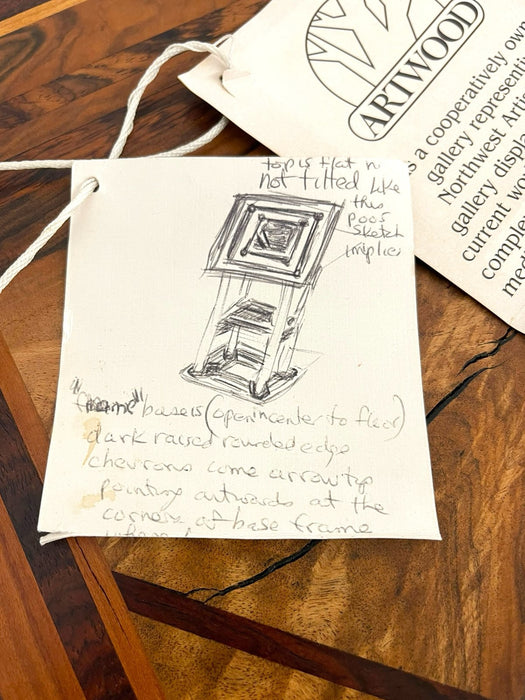 top is flat n
not tilted like
this
poor
sketch
implies
"frame" base is (open in center to floor)
dark raised rounded edge
chevrons come arrow top
pointing outwards at the
corners of base frame
ARTWOOD
s a cooperatively own
gallery representi
Northwest Arti
gallery displ
current wo
comple
medi